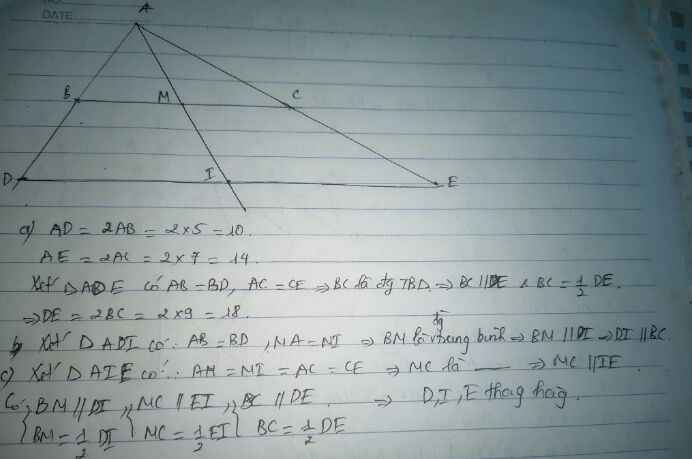 DATE
A
B M C
D I E
a) AD = 2AB = 2×5 = 10.
AE = 2AC = 2×7 = 14.
Xét ΔADE có AB = BD, AC = CE ⇒ BC là đg TBD. ⇒ BC // DE & BC = 1/2 DE.
⇒ DE = 2BC = 2×9 = 18.
b) Xét ΔADI có: AB = BD, MA = MI ⇒ BM là đg trung bình ⇒ BM // DI ⇒ DI // BC
c) Xét ΔAIE có: AM = MI = AC = CE ⇒ MC là —— ⇒ MC // IE.
Có: BM // DI, MC // EI, BC // DE. ⇒ D, I, E thag hàg.
BM = 1/2 DI MC = 1/2 EI BC = 1/2 DE